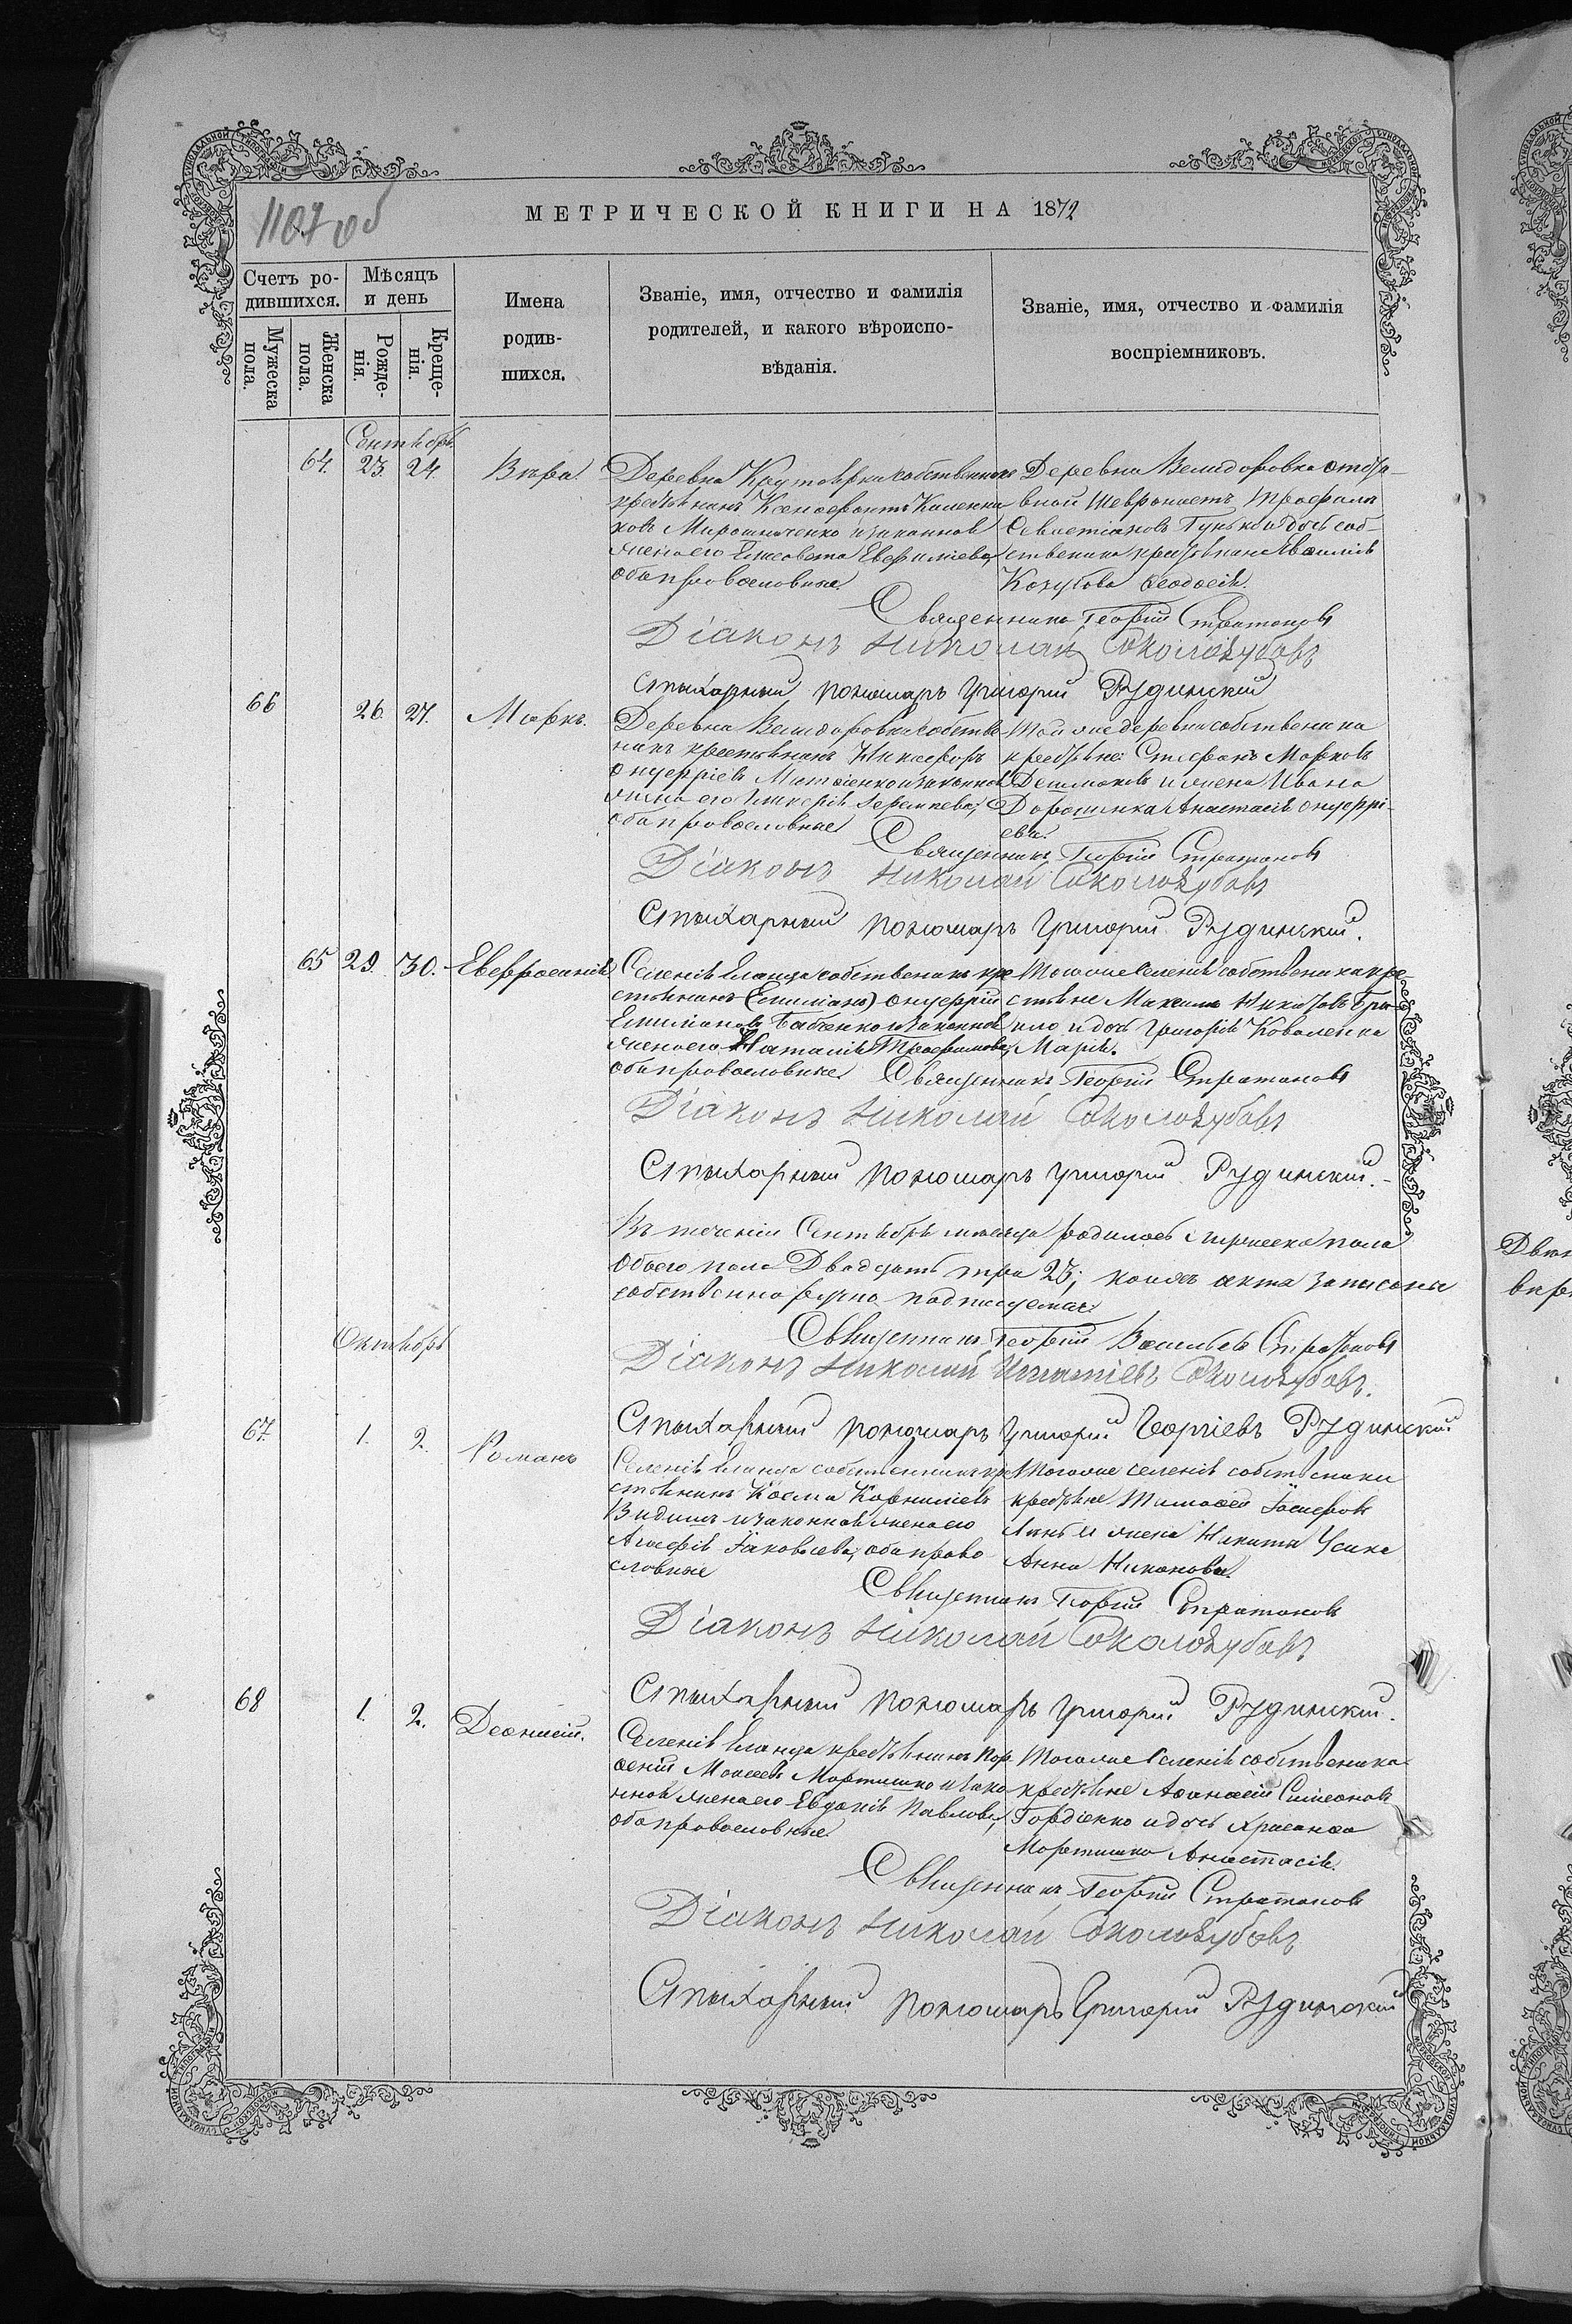 1107 об
МЕТРИЧЕСКОЙ КНИГИ НА 1872
Счетъ ро-
дившихся.
Мѣсяцъ
и день
Мужеска
пола.
Женска
пола.
Рожде-
нія.
Креще-
нія.
Имена
родив-
шихся.
Званіе, имя, отчество и фамилія
родителей, и какого вѣроиспо-
вѣданія.
Званіе, имя, отчество и фамилія
воспріемниковъ.
Сентябрь
64. 23 24. Вѣра.
Деревна собственникъ
крестьянинъ Ксенофонтъ
ковъ Мирошниченко и законная
жена его Елисавета Евфиміева,
оба православные
Деревни Велидоровка отста-
вной Трофимъ
Севастіановъ Гунько и дочь соб-
ственника крестьянина
Козубова Феодосія.
Священникъ Георгій Стратоновъ
Діаконъ Николай Соколозубовъ
Стихарный пономарь Григорій Рудинскій
66 26 27. Маркъ.
Деревна Велидоровка собствен-
никъ крестьянинъ Никифоръ
Онуфріевъ Матвіенко и законная
жена его Гликерія Іереміева,
оба православные
Той же деревни собственники
крестьяне: Стефанъ Марковъ
и жена Ивана
Дорошенка Анастасія Онуфрі-
ева.
Священникъ Георгій Стратоновъ
Діаконъ Николай Соколозубовъ
Стихарный пономарь Григорій Рудинскій.
65 29. 30. Евфросинія
Селенія собственникъ кре
стьянинъ (Емиліанъ) Онуфрій
Емиліановъ Бабченко и законная
жена его Наталія Трофимова,
оба православные
Того же селенія собственники кре-
стьяне Максимъ
и дочь Григорія Коваленка
Марія.
Священникъ Георгій Стратоновъ
Діаконъ Николай Соколозубовъ
Стихарный пономарь Григорій Рудинскій.-
Въ теченіи Сентября мѣсяца родилось мужеска пола
обоего пола Двадцать три 23; коихъ акта записаны
собственноручно подписуемся:
Священникъ Георгій Васильевъ Стратоновъ
Діаконъ Николай Игнатіевъ Соколозубовъ.
Стихарный пономарь Григорій Георгіевъ Рудинскій
Октябрь
67. 1. 2. Романъ
Селенія собственникъ кре
стьянинъ Косма Корниліевъ
Видишъ и законная жена его
Агафія Іаковлева, оба право
словные
Того же селенія собственники
крестьяне Тимофей Іосифовъ
и жена Никиты Усика
Анна Никонова.
Священникъ Георгій Стратоновъ
Діаконъ Николай Соколозубовъ
Стихарный пономарь Григорій Рудинскій.
68 1. 2. Деонисій.
Селенія крестьянинъ Пор
фирій Моисеевъ Мартишко и зако
нная жена его Евдокія Павлова,
оба православные
Того же селенія собственники
крестьяне Афанасій Симеоновъ
Гордіенко и дочь Хрисанфа
Мартишко Анастасія.
Священникъ Георгій Стратоновъ
Діаконъ Николай Соколозубовъ
Стихарный пономарь Григорій Рудинскій